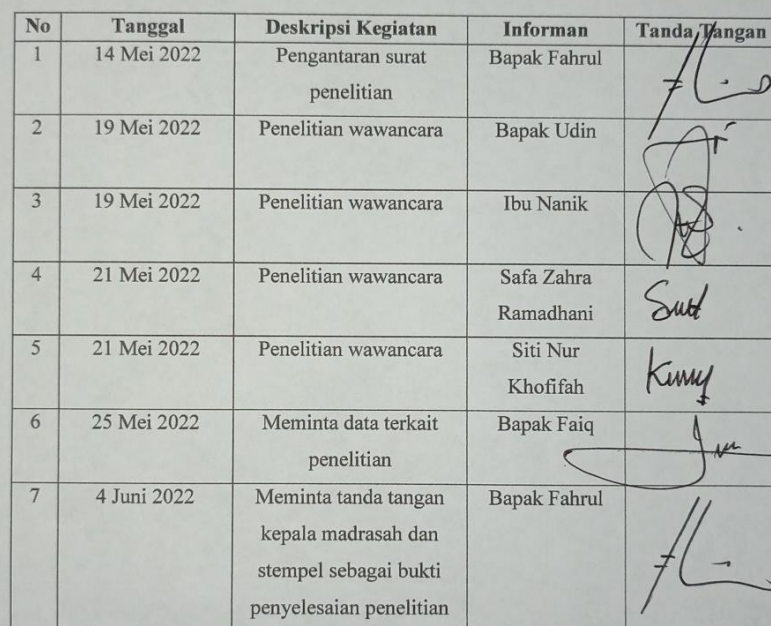 No Tanggal Deskripsi Kegiatan Informan Tanda Tangan
1 14 Mei 2022 Pengantaran surat Bapak Fahrul
penelitian
2 19 Mei 2022 Penelitian wawancara Bapak Udin
3 19 Mei 2022 Penelitian wawancara Ibu Nanik
4 21 Mei 2022 Penelitian wawancara Safa Zahra
Ramadhani
5 21 Mei 2022 Penelitian wawancara Siti Nur
Khofifah
6 25 Mei 2022 Meminta data terkait Bapak Faiq
penelitian
7 4 Juni 2022 Meminta tanda tangan Bapak Fahrul
kepala madrasah dan
stempel sebagai bukti
penyelesaian penelitian